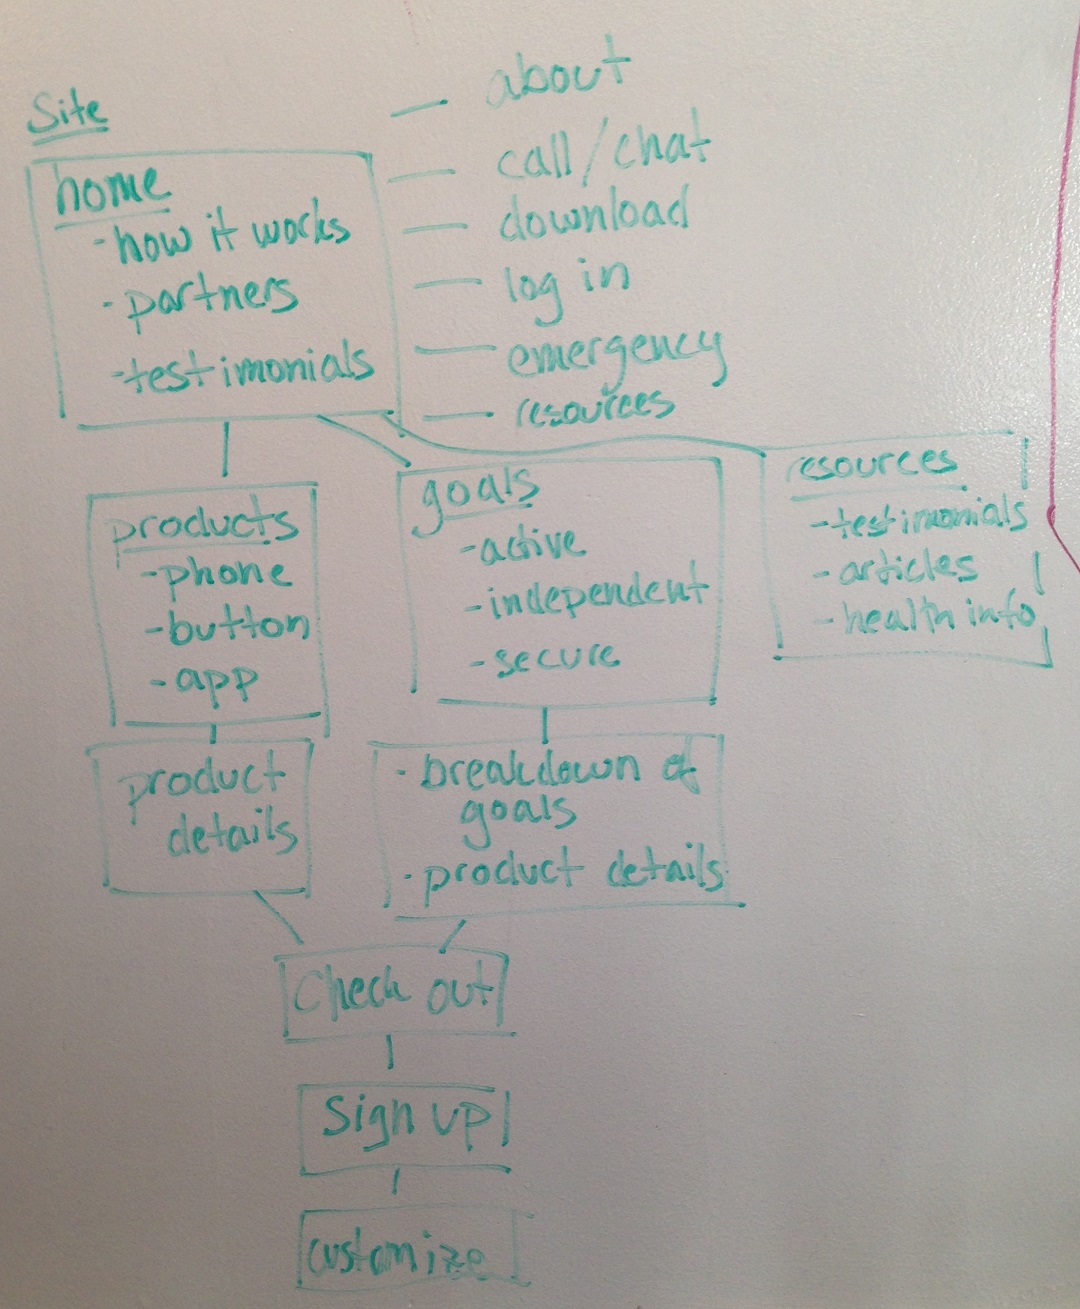 Site
home
- how it works
- partners
- testimonials
— about
— call/chat
— download
— log in
— emergency
— resources
products
- phone
- button
- app
goals
- active
- independent
- secure
resources
- testimonials
- articles
- health info
product
details
- breakdown of
goals
- product details
Check out
Sign up
customize